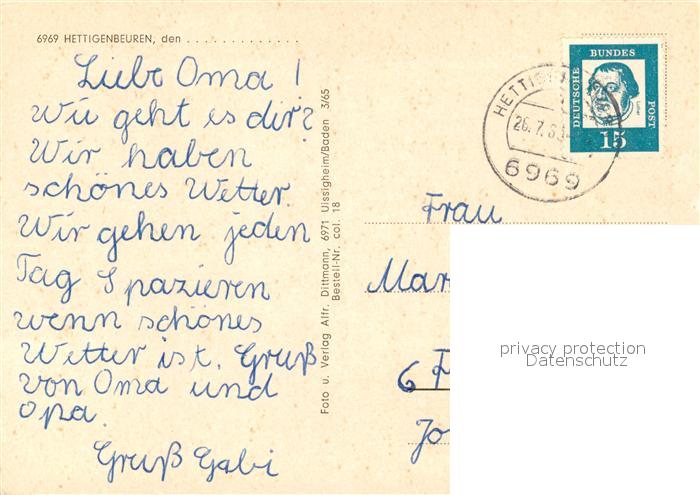 6969 HETTIGENBEUREN, den
Liebe Oma!
Wie geht es dir?
Wir haben
schönes Wetter.
Wir gehen jeden
Tag Spazieren
wenn schönes
Wetter ist. Gruß
von Oma und
Opa.
Gruß Gabi
Foto u. Verlag Alfr. Dittmann, 6971 Uissigheim/Baden 3/65
Bestell-Nr. col. 18
DEUTSCHE BUNDES POST
15
6969
Frau
6 F
privacy protection
Datenschutz